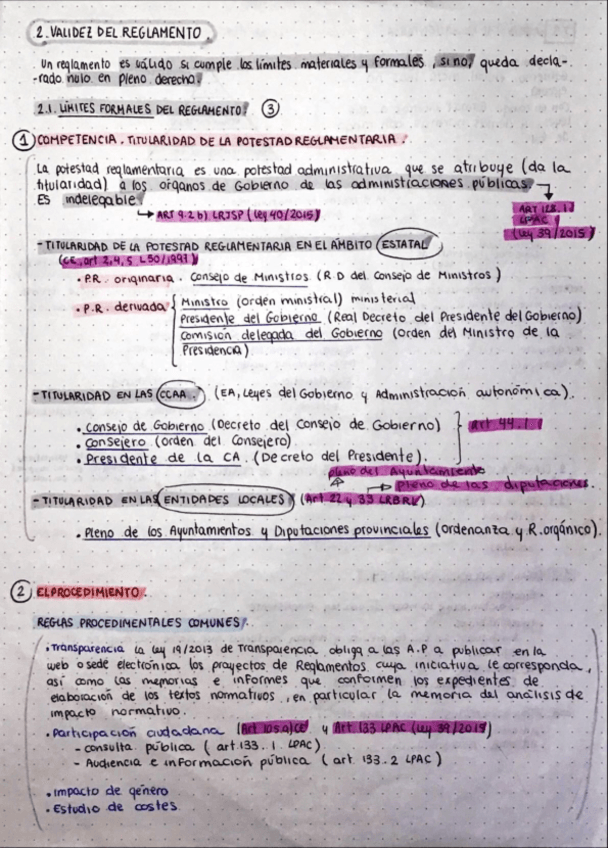 2. VALIDEZ DEL REGLAMENTO
Un reglamento es válido si cumple los límites materiales y formales, si no, queda decla-
-rado nulo en pleno derecho.
2.1. LÍMITES FORMALES DEL REGLAMENTO: ③
① COMPETENCIA. TITULARIDAD DE LA POTESTAD REGLAMENTARIA.
La potestad reglamentaria es una potestad administrativa que se atribuye (da la
titularidad) a los órganos de Gobierno de las administraciones públicas.
Es indelegable
→ ART 9.2 b) LRJSP (Ley 40/2015)
ART 128.1
LPAC
(Ley 39/2015)
- TITULARIDAD DE LA POTESTAD REGLAMENTARIA EN EL ÁMBITO ESTATAL
(CE, art 2,4,5 L 50/1997)
• P.R. originaria. Consejo de Ministros (R.D del Consejo de Ministros)
• P.R. derivada Ministro (orden ministral) ministerial
Presidente del Gobierno (Real Decreto del Presidente del Gobierno)
Comisión delegada del Gobierno (orden del Ministro de la
Presidencia)
- TITULARIDAD EN LAS CCAA. (EA, Leyes del Gobierno y Administración autonómica).
• Consejo de Gobierno (Decreto del Consejo de Gobierno)
• Consejero (orden del Consejero). Art 44.1
• Presidente de la CA. (Decreto del Presidente).
pleno del Ayuntamiento
→ pleno de las diputaciones.
- TITULARIDAD EN LAS ENTIDADES LOCALES (Art 22 y 33 LRBRL)
• Pleno de los Ayuntamientos y Diputaciones provinciales (ordenanza y R.orgánico).
② EL PROCEDIMIENTO.
REGLAS PROCEDIMENTALES COMUNES:
• Transparencia la ley 19/2013 de Transparencia obliga a las A.P a publicar en la
web o sede electrónica los proyectos de Reglamentos cuya iniciativa le corresponda,
así como las memorias e informes que conformen los expedientes de
elaboración de los textos normativos, en particular la memoria del análisis de
impacto normativo.
• Participación ciudadana (Art 105 a) CE y Art 133 LPAC (Ley 39/2015)
- consulta pública (art. 133. 1. LPAC)
- Audiencia e información pública (art. 133.2 LPAC)
• Impacto de género
• Estudio de costes.